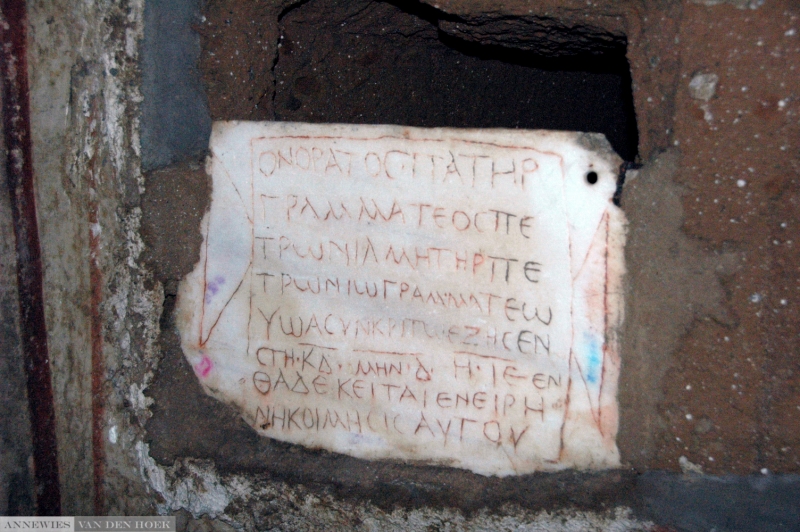 ΟΝΟΡΑΤΟСΠΑΤΗΡ
ΓΡΑΜΜΑΤΕΟСΠΕ
ΤΡΩΝΙΑΜΗΤΗΡΠΕ
ΤΡΩΝΙΩΓΡΑΜΜΑΤΕΩ
ΥΙΩΑСΥΝΚΡΙΤΩΕΖΗСΕΝ
ΕΤΗ·ΚΔ·ΜΗΝ·Δ·Η·ΙΕ·ΕΝ
ΘΑΔΕΚΕΙΤΑΙΕΝΕΙΡΗ
ΝΗΚΟΙΜΗСΙСΑΥΤΟΥ
ANNEWIES VAN DEN HOEK